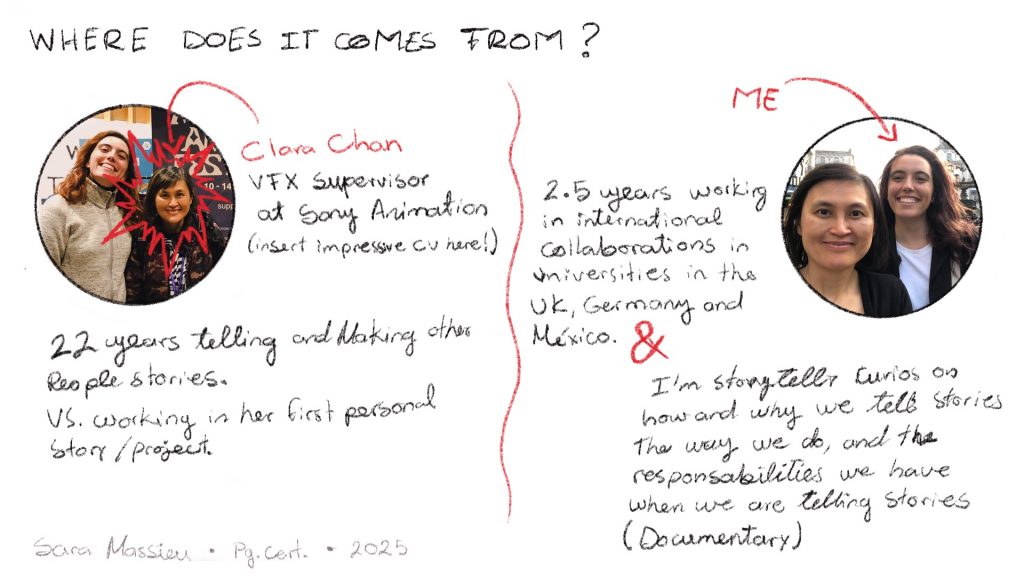 WHERE DOES IT COMES FROM?
Clara Chan
VFX Supervisor
at Sony Animation
(insert impressive CV here!)
22 years telling and Making other
People stories.
VS. working in her first personal
story/project.
ME
2.5 years working
in international
collaborations in
universities in the
UK, Germany and
México. &
I'm storyteller curios on
how and why we tell stories
The way we do, and the
responsabilities we have
when we are telling stories
(Documentary)
Sara Massieu • Pg.Cert. • 2025
10 - 14